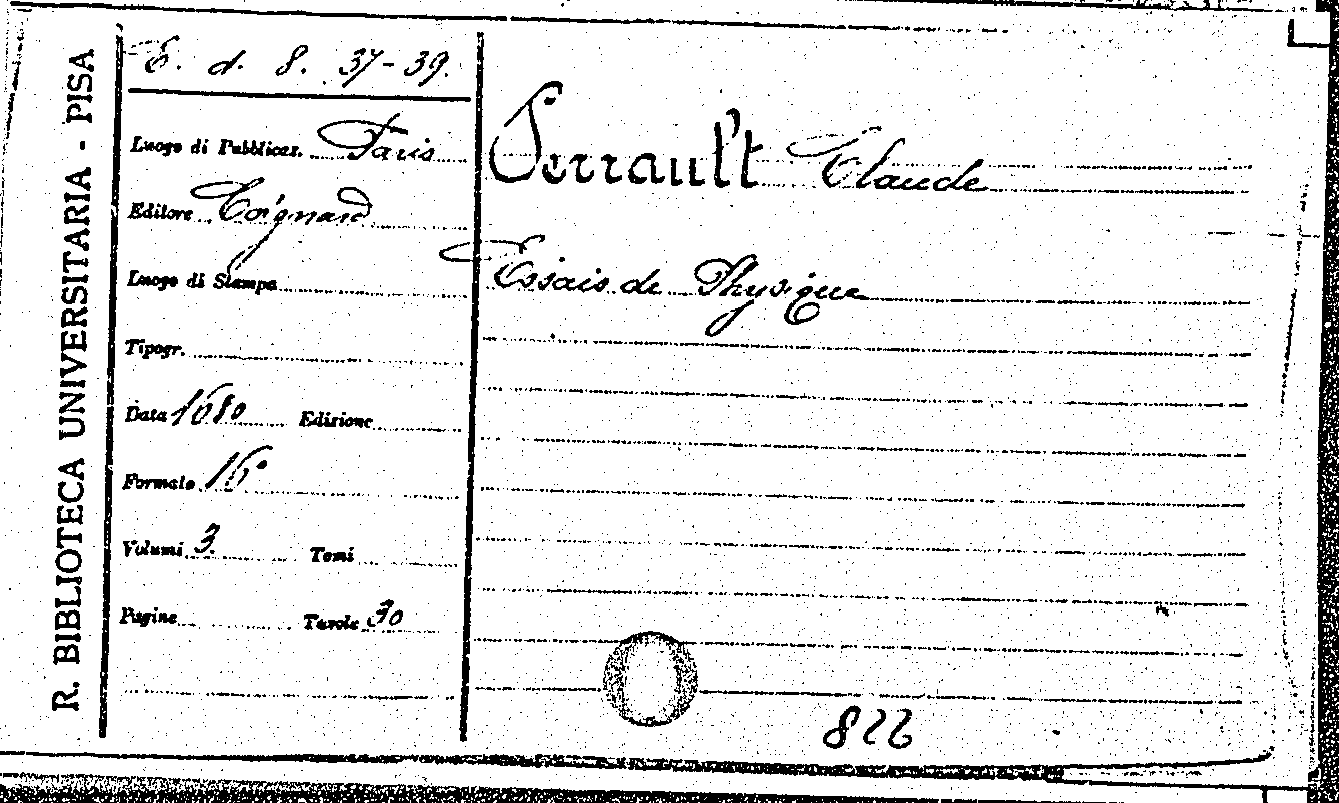 R. BIBLIOTECA UNIVERSITARIA - PISA
E. d. 8. 37-39.
Luogo di Pubblicaz. Paris
Editore Coignard
Luogo di Stampa
Tipogr.
Data 1680 Edizione
Formato 16°
Volumi 3 Tomi
Pagine Tavole 30
Perrault Claude
Essais de Physique
822